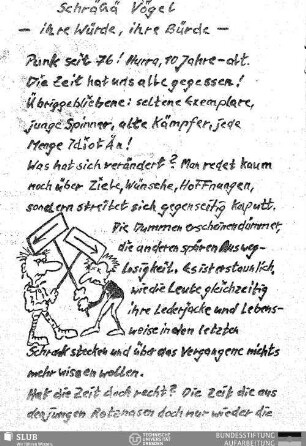 Schräää Vögel
— ihre Würde, ihre Bürde —
Punk seit 76! Hurra, 10 Jahre-alt.
Die Zeit hat uns alle gegessen!
Übriggebliebene: seltene Exemplare,
junge Spinner, alte Kämpfer, jede
Menge Idiot Än!
Was hat sich verändert? Man redet kaum
noch über Ziele, Wünsche, Hoffnungen,
sondern streitet sich gegenseitig kaputt.
Die Dummen erscheinen dümmer,
die anderen spüren Ausweg-
losigkeit. Es ist erstaunlich,
wie die Leute gleichzeitig
ihre Lederjacke und Lebens-
weise in den letzten
Schrank stecken und über das Vergangene nichts
mehr wissen wollen.
Hat die Zeit doch recht? Die Zeit die aus
den jungen Rotznasen doch nur wieder die
SLUB
Wir führen Wissen.
TECHNISCHE
UNIVERSITÄT
DRESDEN
BUNDESSTIFTUNG
AUFARBEITUNG